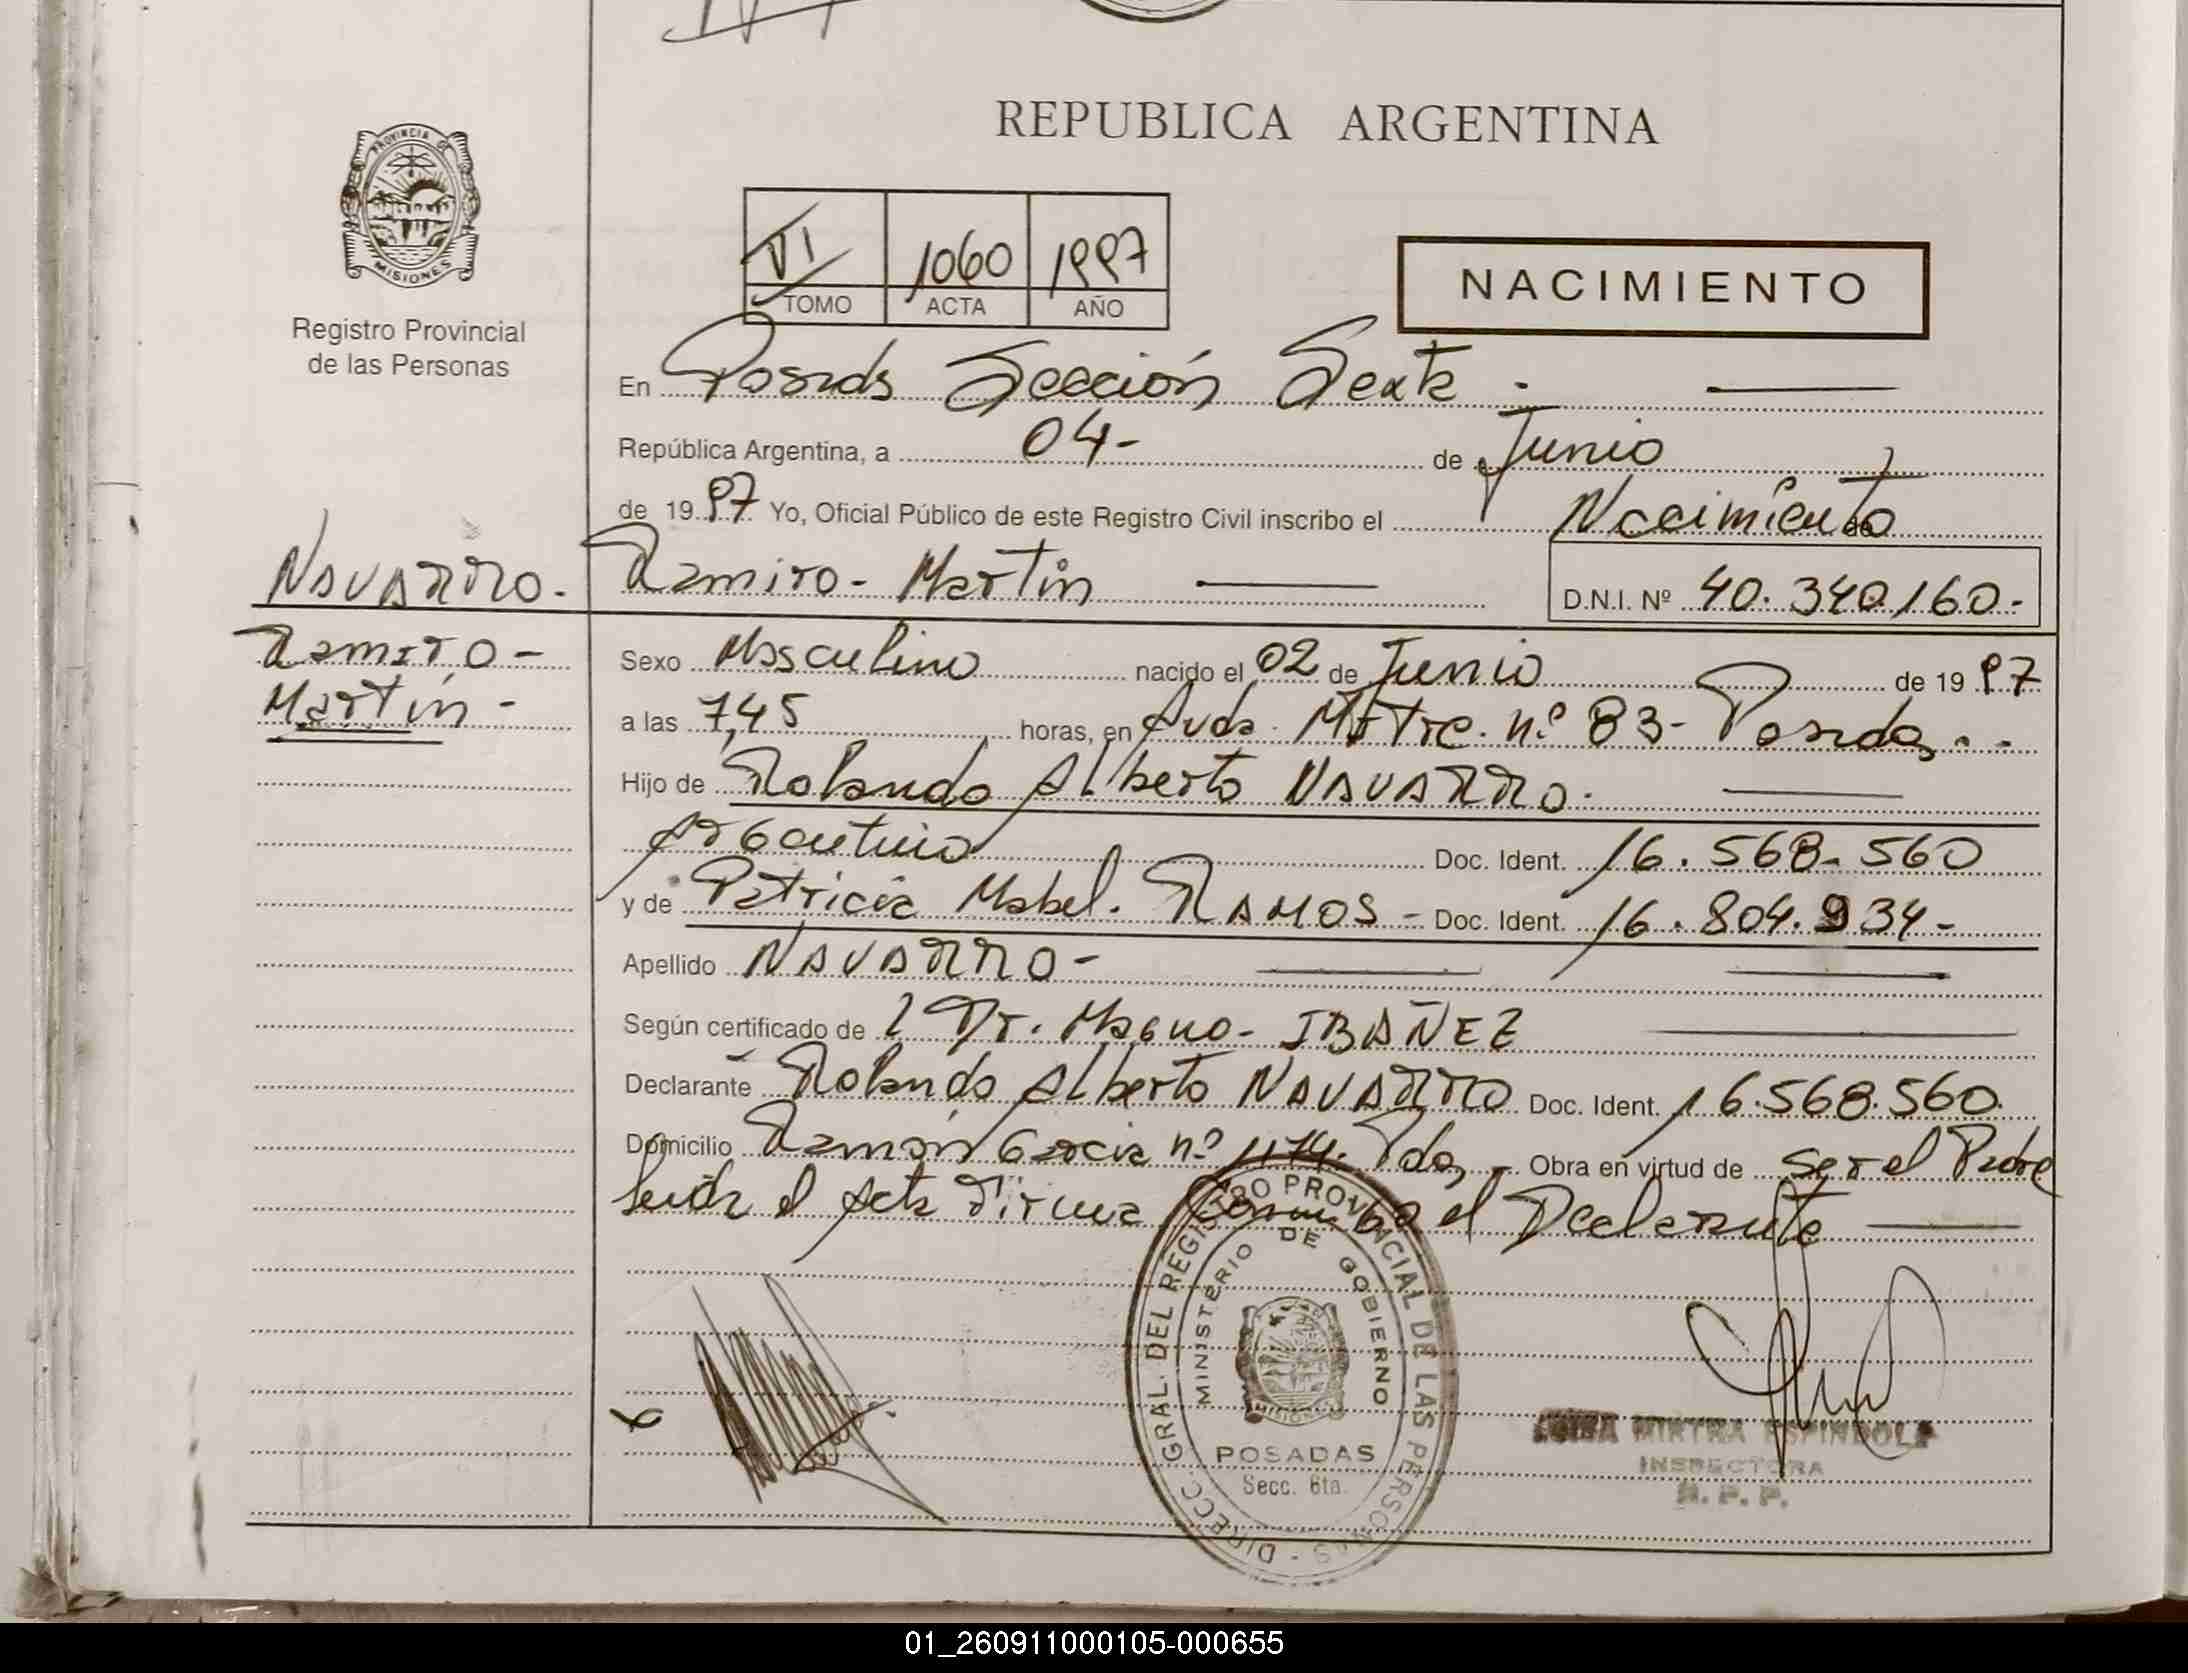 REPUBLICA ARGENTINA
PROVINCIA DE
MISIONES
Registro Provincial
de las Personas
VI 1060 1997
TOMO ACTA AÑO
NACIMIENTO
En Posadas Sección Sexta
República Argentina, a 04- de Junio
de 1997 Yo, Oficial Público de este Registro Civil inscribo el Nacimiento de
NAVARRO. Ramiro - Martín
D.N.I. Nº 40.340.160.
Ramiro -
Martín -
Sexo Masculino nacido el 02 de Junio de 1997
a las 7,45 horas, en Avda. Mitre. nº 83 - Posadas..
Hijo de Rolando Alberto NAVARRO.
Argentino Doc. Ident. 16.568.560
y de Patricia Mabel. RAMOS - Doc. Ident. 16.804.934-
Apellido NAVARRO-
Según certificado de l Dr. Magno - IBAÑEZ
Declarante Rolando Alberto NAVARRO Doc. Ident. 16.568.560.
Domicilio Ramón Garcia nº 1174. Pdas. Obra en virtud de Ser el Padre
Leida el Acta Firma Conmigo el Declarante
DIRECC. GRAL. DEL REGISTRO PROVINCIAL DE LAS PERSONAS -
MINISTERIO DE GOBIERNO
MISIONES
POSADAS
Secc. 6ta.
MIRTHA ESPINDOLA
INSPECTORA
R. P. P.
01_260911000105-000655